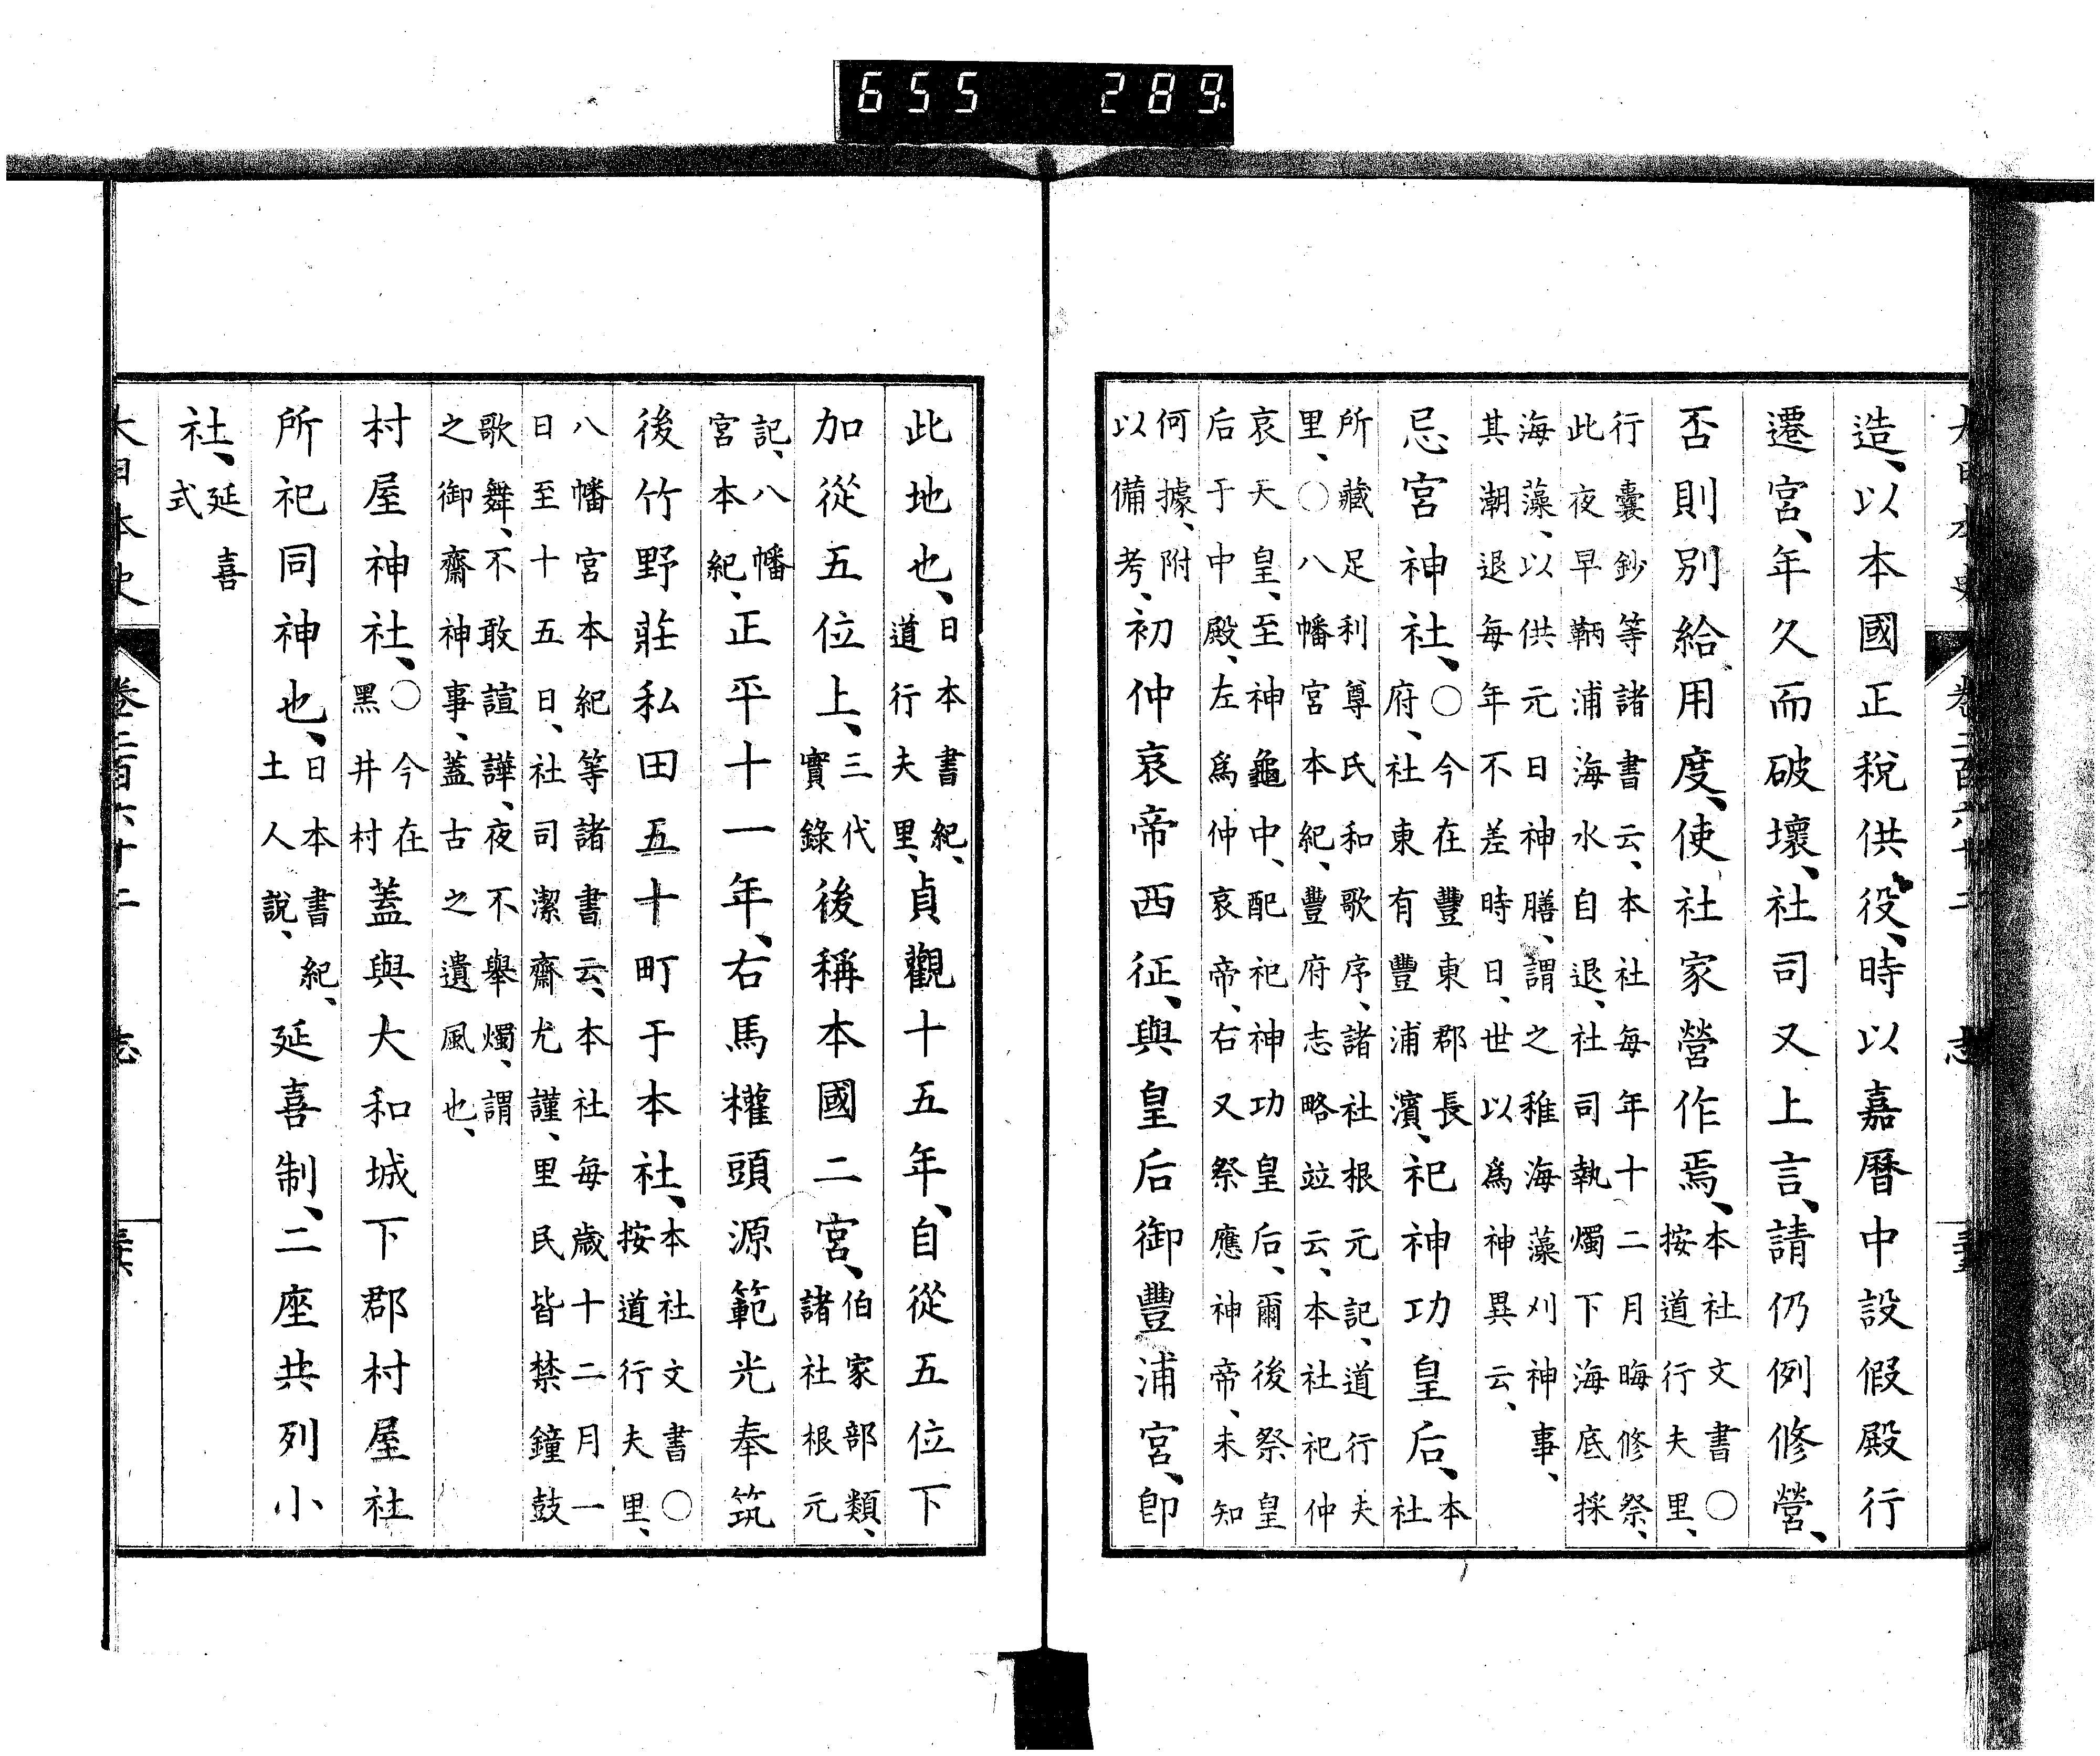 655 289.
大日本史 卷二百六十二 志
造、以本國正稅供役、時以嘉曆中設假殿行
遷宮、年久而破壞、社司又上言、請仍例修營、
否則別給用度、使社家營作焉、本社文書○按道行夫里、
行囊鈔等諸書云、本社每年十二月晦修祭、此夜早鞆浦海水自退、社司執燭下海底採
海藻、以供元日神膳、謂之稚海藻刈神事、其潮退每年不差時日、世以爲神異云、
忌宮神社、○今在豐東郡長府、社東有豐浦濱、祀神功皇后、本社
所藏足利尊氏和歌序、諸社根元記、道行夫里、○八幡宮本紀、豐府志略竝云、本社祀仲
哀天皇、至神龜中、配祀神功皇后、爾後祭皇后于中殿、左爲仲哀帝、右又祭應神帝、未知
何據、附以備考、初仲哀帝西征、與皇后御豐浦宮、卽
此地也、日本書紀、道行夫里、貞觀十五年、自從五位下
加從五位上、三代實錄後稱本國二宮、伯家部類、諸社根元
記、八幡宮本紀、正平十一年、右馬權頭源範光奉筑
後竹野莊私田五十町于本社、本社文書○按道行夫里、
八幡宮本紀等諸書云、本社每歲十二月一日至十五日、社司潔齋尤謹、里民皆禁鐘鼓
歌舞、不敢諠譁、夜不舉燭、謂之御齋神事、蓋古之遺風也、
村屋神社、○今在黑井村蓋與大和城下郡村屋社
所祀同神也、日本書紀、土人說、延喜制、二座共列小
社、延喜式
大日本史 卷二百六十二 志